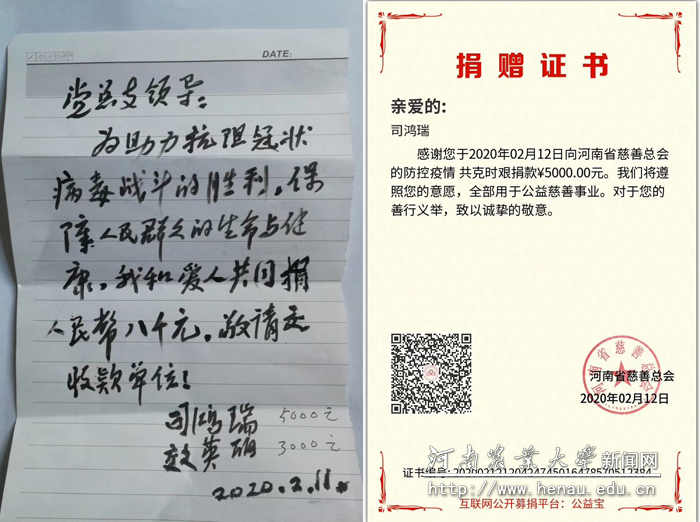 DATE:
党总支领导:
为助力抗阻冠状
病毒战斗的胜利,保
障人民群众的生命与健
康,我和爱人共同捐
人民币八千元。敬请交
收款单位!
司鸿瑞 5000元
英 3000元
2020.2.11
捐赠证书
亲爱的:
司鸿瑞
感谢您于2020年02月12日向河南省慈善总会
的防控疫情 共克时艰捐款¥5000.00元。我们将遵
照您的意愿,全部用于公益慈善事业。对于您的
善行义举,致以诚挚的敬意。
河南省慈善总会
河南省慈善总会
2020年02月12日
河南农业大学新闻网
证书编号:
http://www.henau.edu.cn
互联网公开募捐平台:公益宝